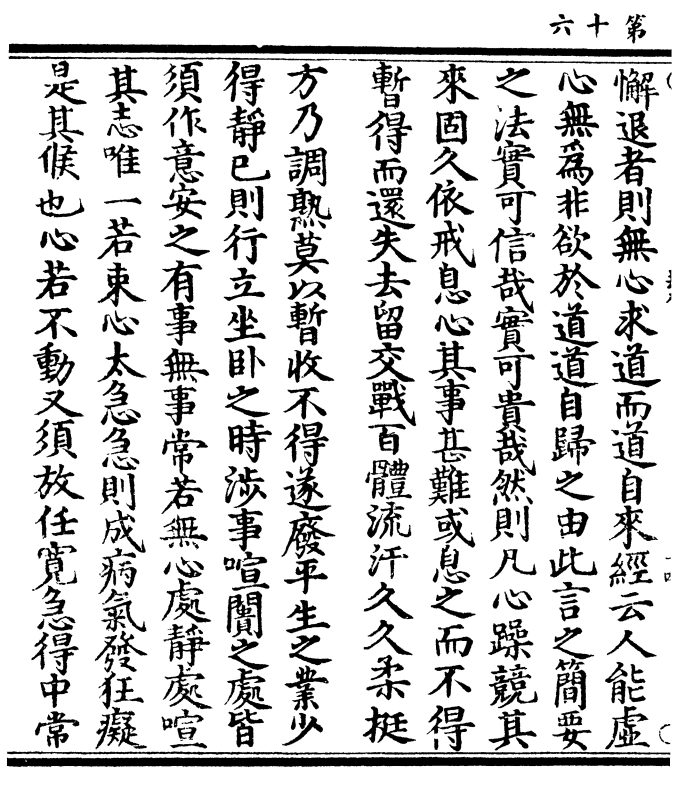 第十六
懈退者則無心求道而道自來經云人能虛
心無爲非欲於道道自歸之由此言之簡要
之法實可信哉實可貴哉然則凡心躁競其
來固久依戒息心其事甚難或息之而不得
暫得而還失去留交戰百體流汗久久柔挻
方乃調熟莫以暫收不得遂廢平生之業少
得靜已則行立坐卧之時涉事喧闠之處皆
須作意安之有事無事常若無心處靜處喧
其志唯一若束心太急急則成病氣發狂癡
是其候也心若不動又須放任寬急得中常